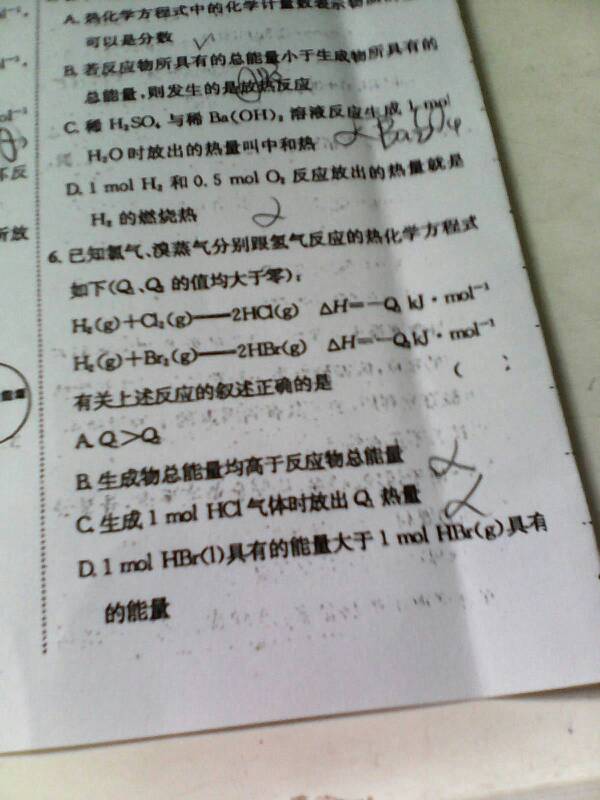 A. 热化学方程式中的化学计量数表示物
可以是分数
B. 若反应物所具有的总能量小于生成物所具有的
总能量,则发生的是放热反应
C. 稀 H₂SO₄ 与稀 Ba(OH)₂ 溶液反应生成 1 mol
H₂O 时放出的热量叫中和热 BaSO₄
D. 1 mol H₂ 和 0.5 mol O₂ 反应放出的热量就是
H₂ 的燃烧热
6. 已知氯气、溴蒸气分别跟氢气反应的热化学方程式
如下(Q₁、Q₂ 的值均大于零):
H₂(g)+Cl₂(g)══2HCl(g) ΔH=-Q₁ kJ·mol⁻¹
H₂(g)+Br₂(g)══2HBr(g) ΔH=-Q₂ kJ·mol⁻¹
有关上述反应的叙述正确的是 (
A. Q₁>Q₂
B. 生成物总能量均高于反应物总能量
C. 生成 1 mol HCl 气体时放出 Q₁ 热量
D. 1 mol HBr(l)具有的能量大于 1 mol HBr(g)具有
的能量